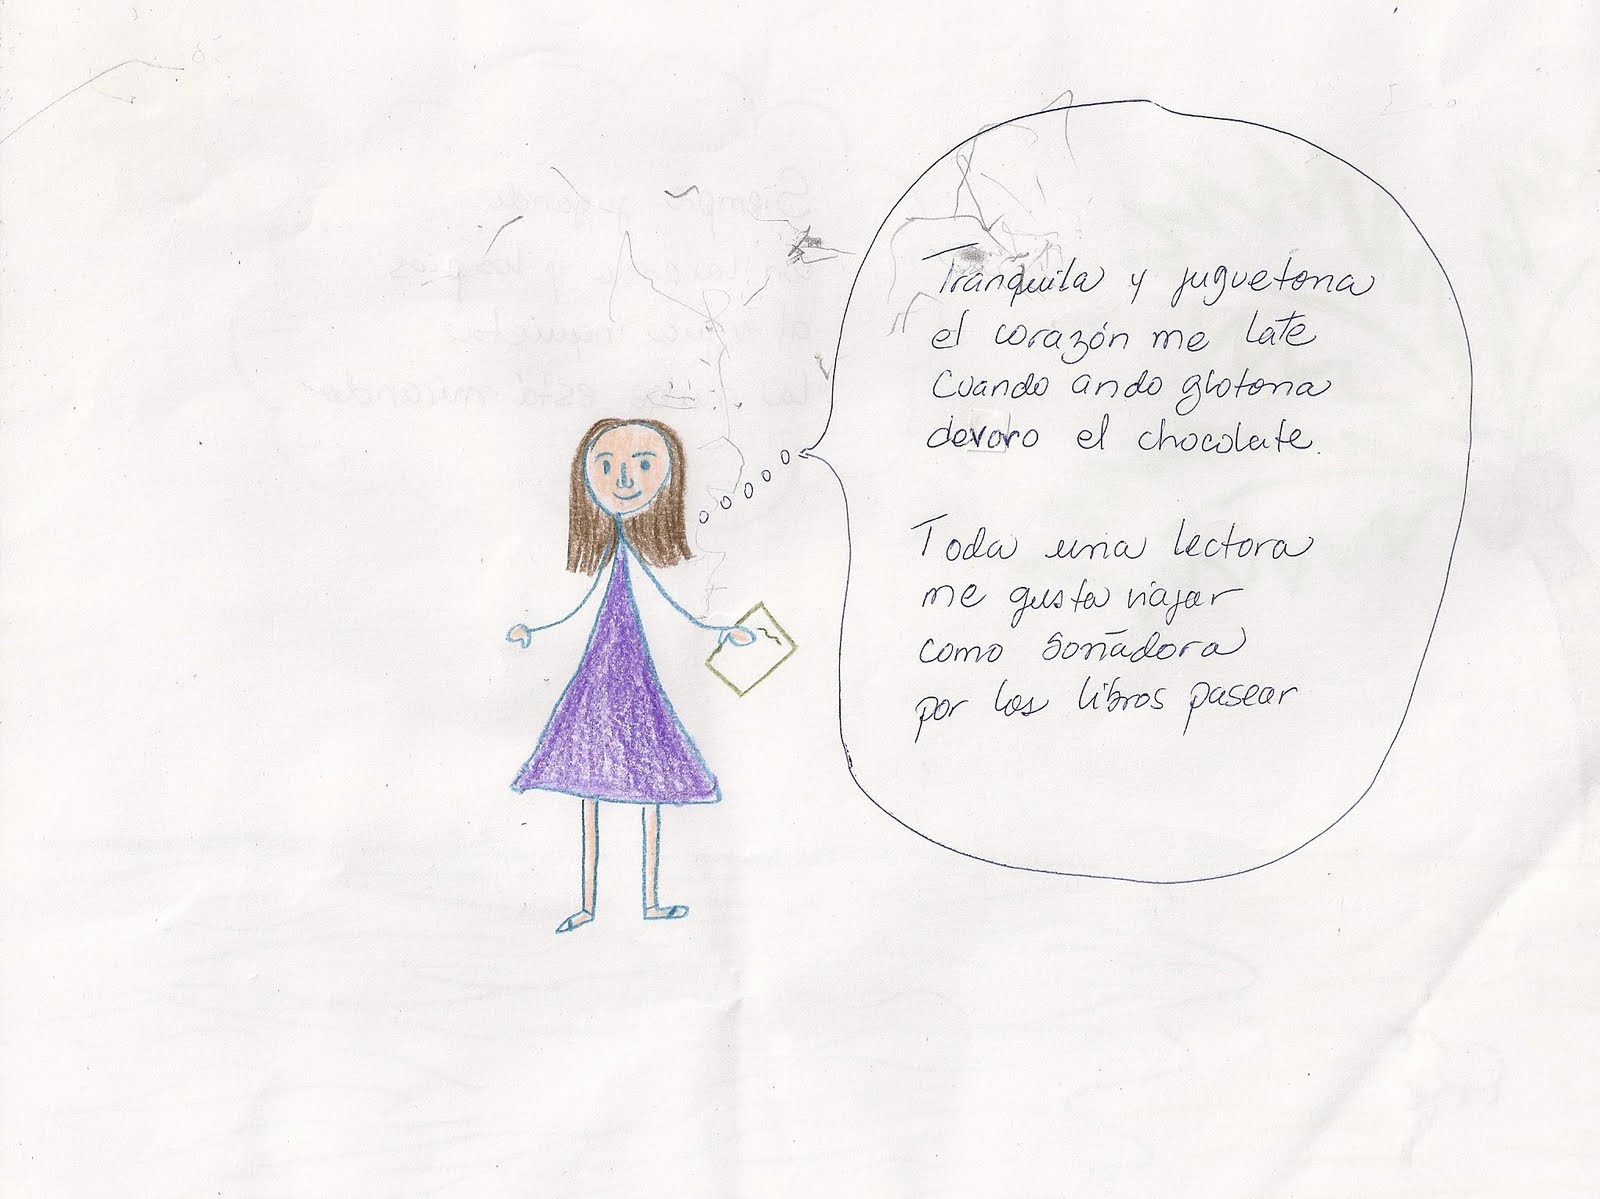 Tranquila y juguetona
el corazón me late
Cuando ando glotona
devoro el chocolate.
Toda una lectora
me gusta viajar
como soñadora
por los libros pasear